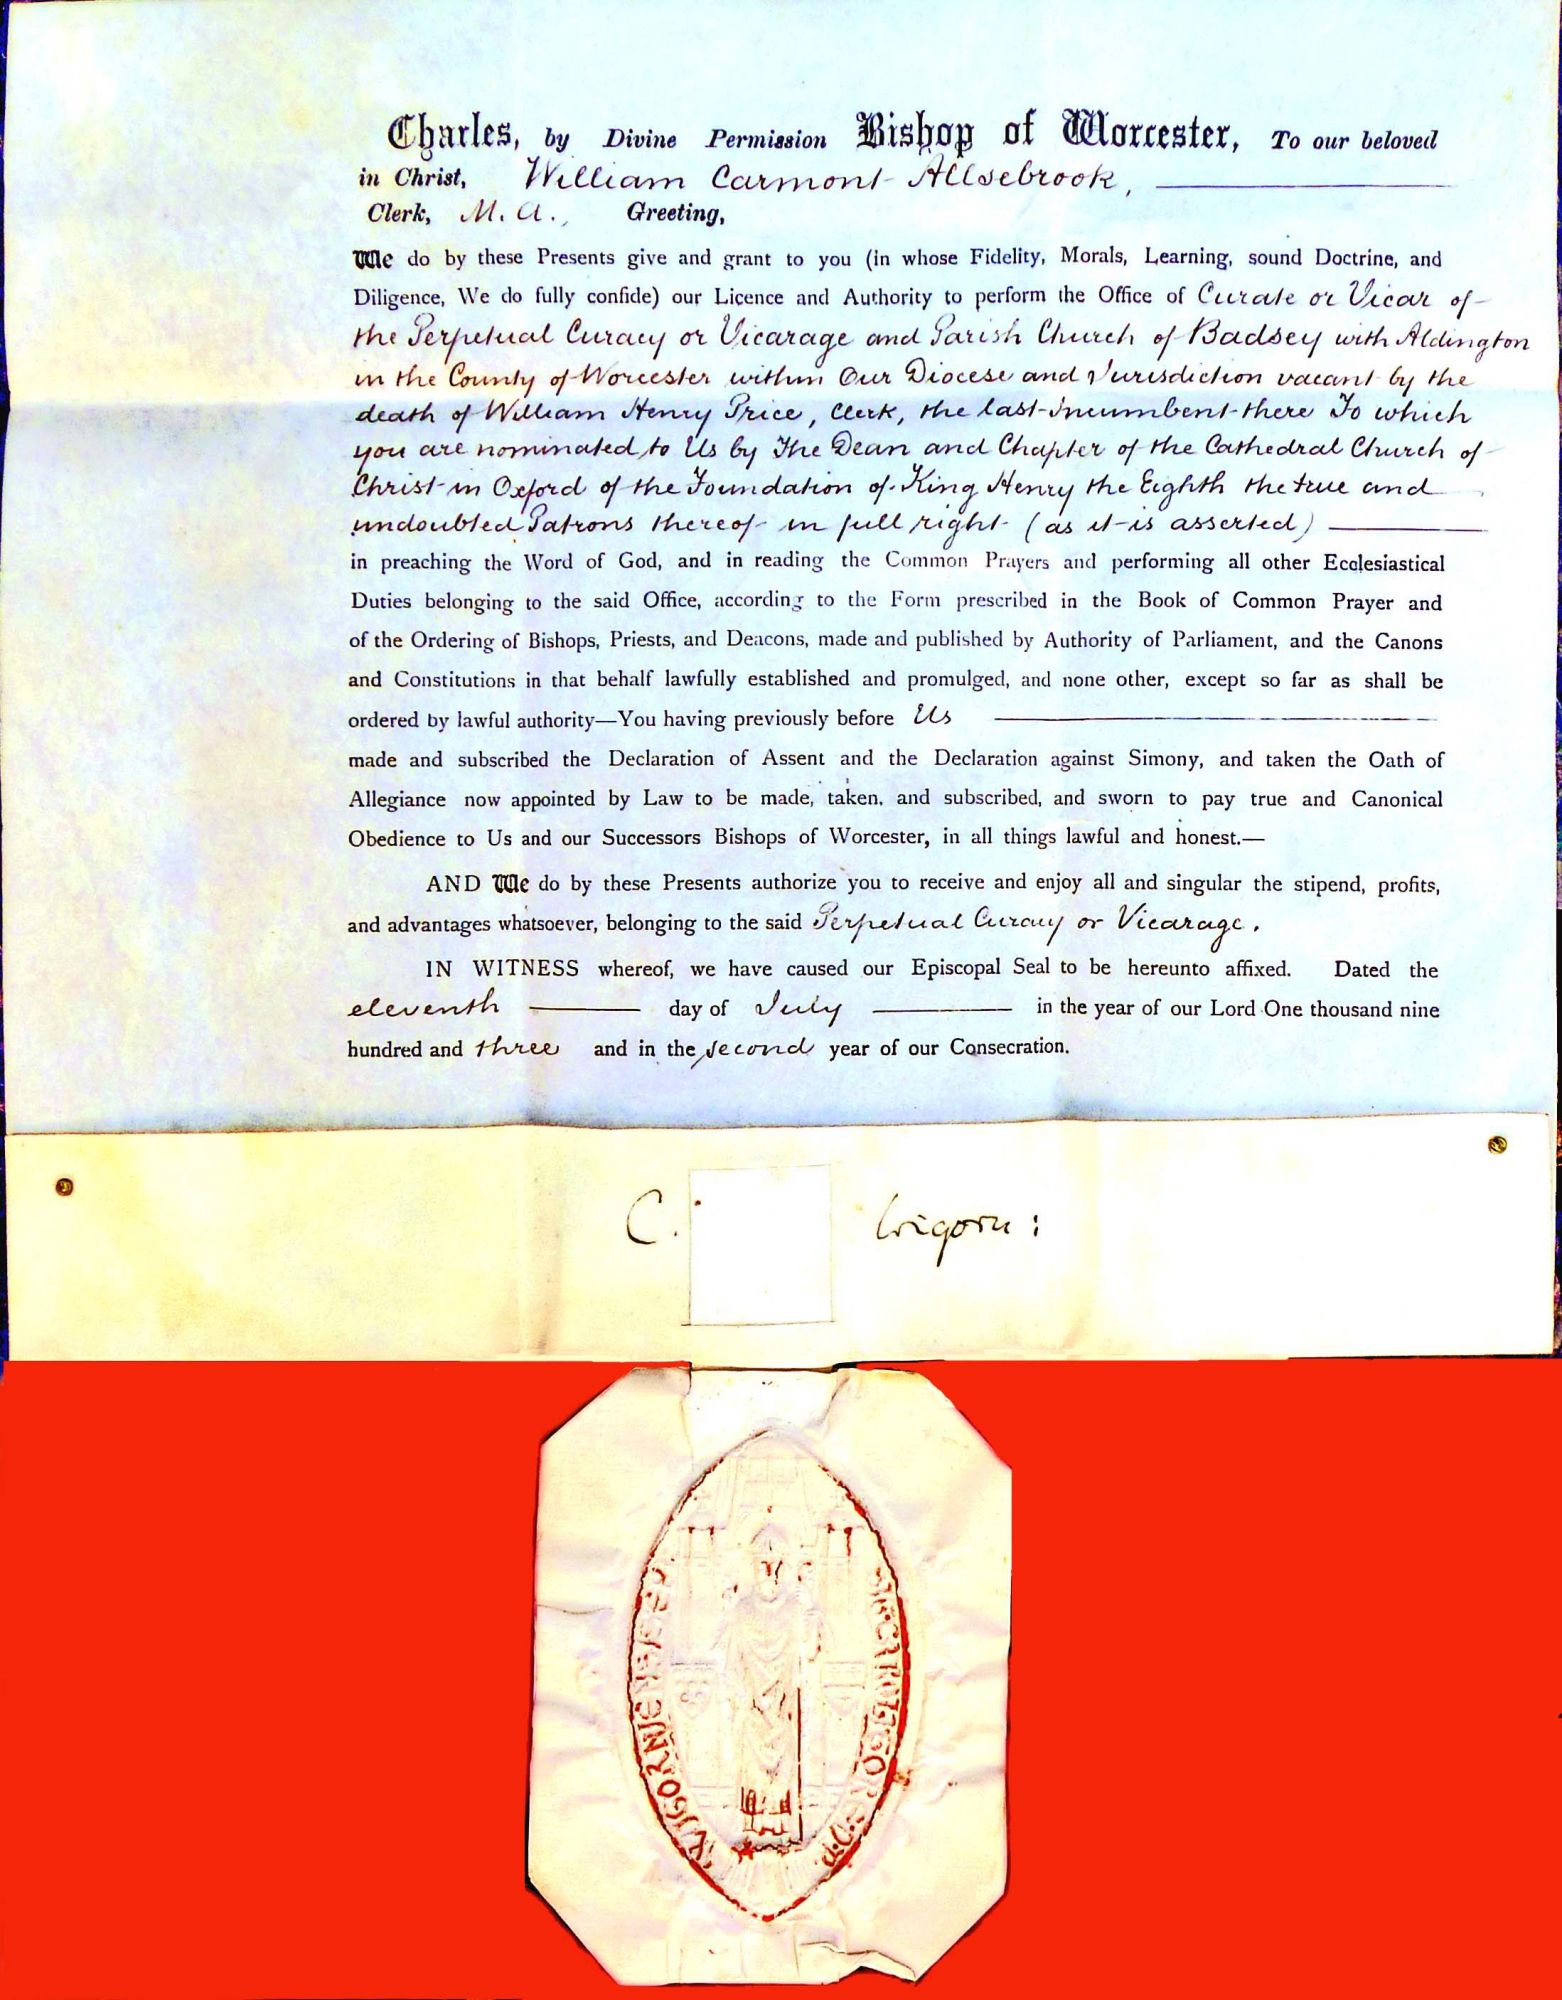 Charles, by Divine Permission Bishop of Worcester, To our beloved
in Christ, William Carmont Allsebrook,
Clerk, M. A., Greeting,
We do by these Presents give and grant to you (in whose Fidelity, Morals, Learning, sound Doctrine, and
Diligence, We do fully confide) our Licence and Authority to perform the Office of Curate or Vicar of
the Perpetual Curacy or Vicarage and Parish Church of Badsey with Aldington
in the County of Worcester within Our Diocese and Jurisdiction vacant by the
death of William Henry Price, Clerk, the last Incumbent there To which
you are nominated to Us by The Dean and Chapter of the Cathedral Church of
Christ in Oxford of the Foundation of King Henry the Eighth the true and
undoubted Patrons thereof in full right (as it is asserted)
in preaching the Word of God, and in reading the Common Prayers and performing all other Ecclesiastical
Duties belonging to the said Office, according to the Form prescribed in the Book of Common Prayer and
of the Ordering of Bishops, Priests, and Deacons, made and published by Authority of Parliament, and the Canons
and Constitutions in that behalf lawfully established and promulged, and none other, except so far as shall be
ordered by lawful authority—You having previously before Us
made and subscribed the Declaration of Assent and the Declaration against Simony, and taken the Oath of
Allegiance now appointed by Law to be made, taken, and subscribed, and sworn to pay true and Canonical
Obedience to Us and our Successors Bishops of Worcester, in all things lawful and honest.—
AND We do by these Presents authorize you to receive and enjoy all and singular the stipend, profits,
and advantages whatsoever, belonging to the said Perpetual Curacy or Vicarage.
IN WITNESS whereof, we have caused our Episcopal Seal to be hereunto affixed. Dated the
eleventh day of July in the year of our Lord One thousand nine
hundred and three and in the second year of our Consecration.
C. Wigorn: